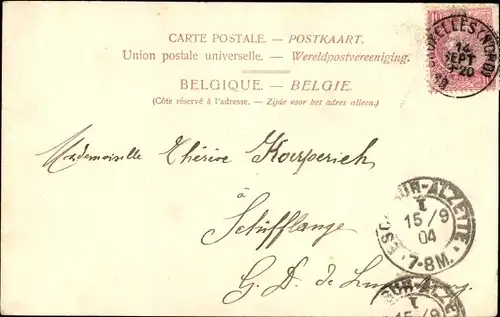 CARTE POSTALE. — POSTKAART.
Union postale universelle. — Wereldpostvereeniging.
BELGIQUE. — BELGIE.
(Côte réservé à l'adresse. — Zijde voor het adres alleen.)
BRUXELLES (NORD)
14
SEPT
Mademoiselle Thérèse Koerperich
à
Schifflange
G. D. de Luxembourg.
ESCH-SUR-ALZETTE
I
15/9
04
7-8M.
SUR-ALZE
I
15/9